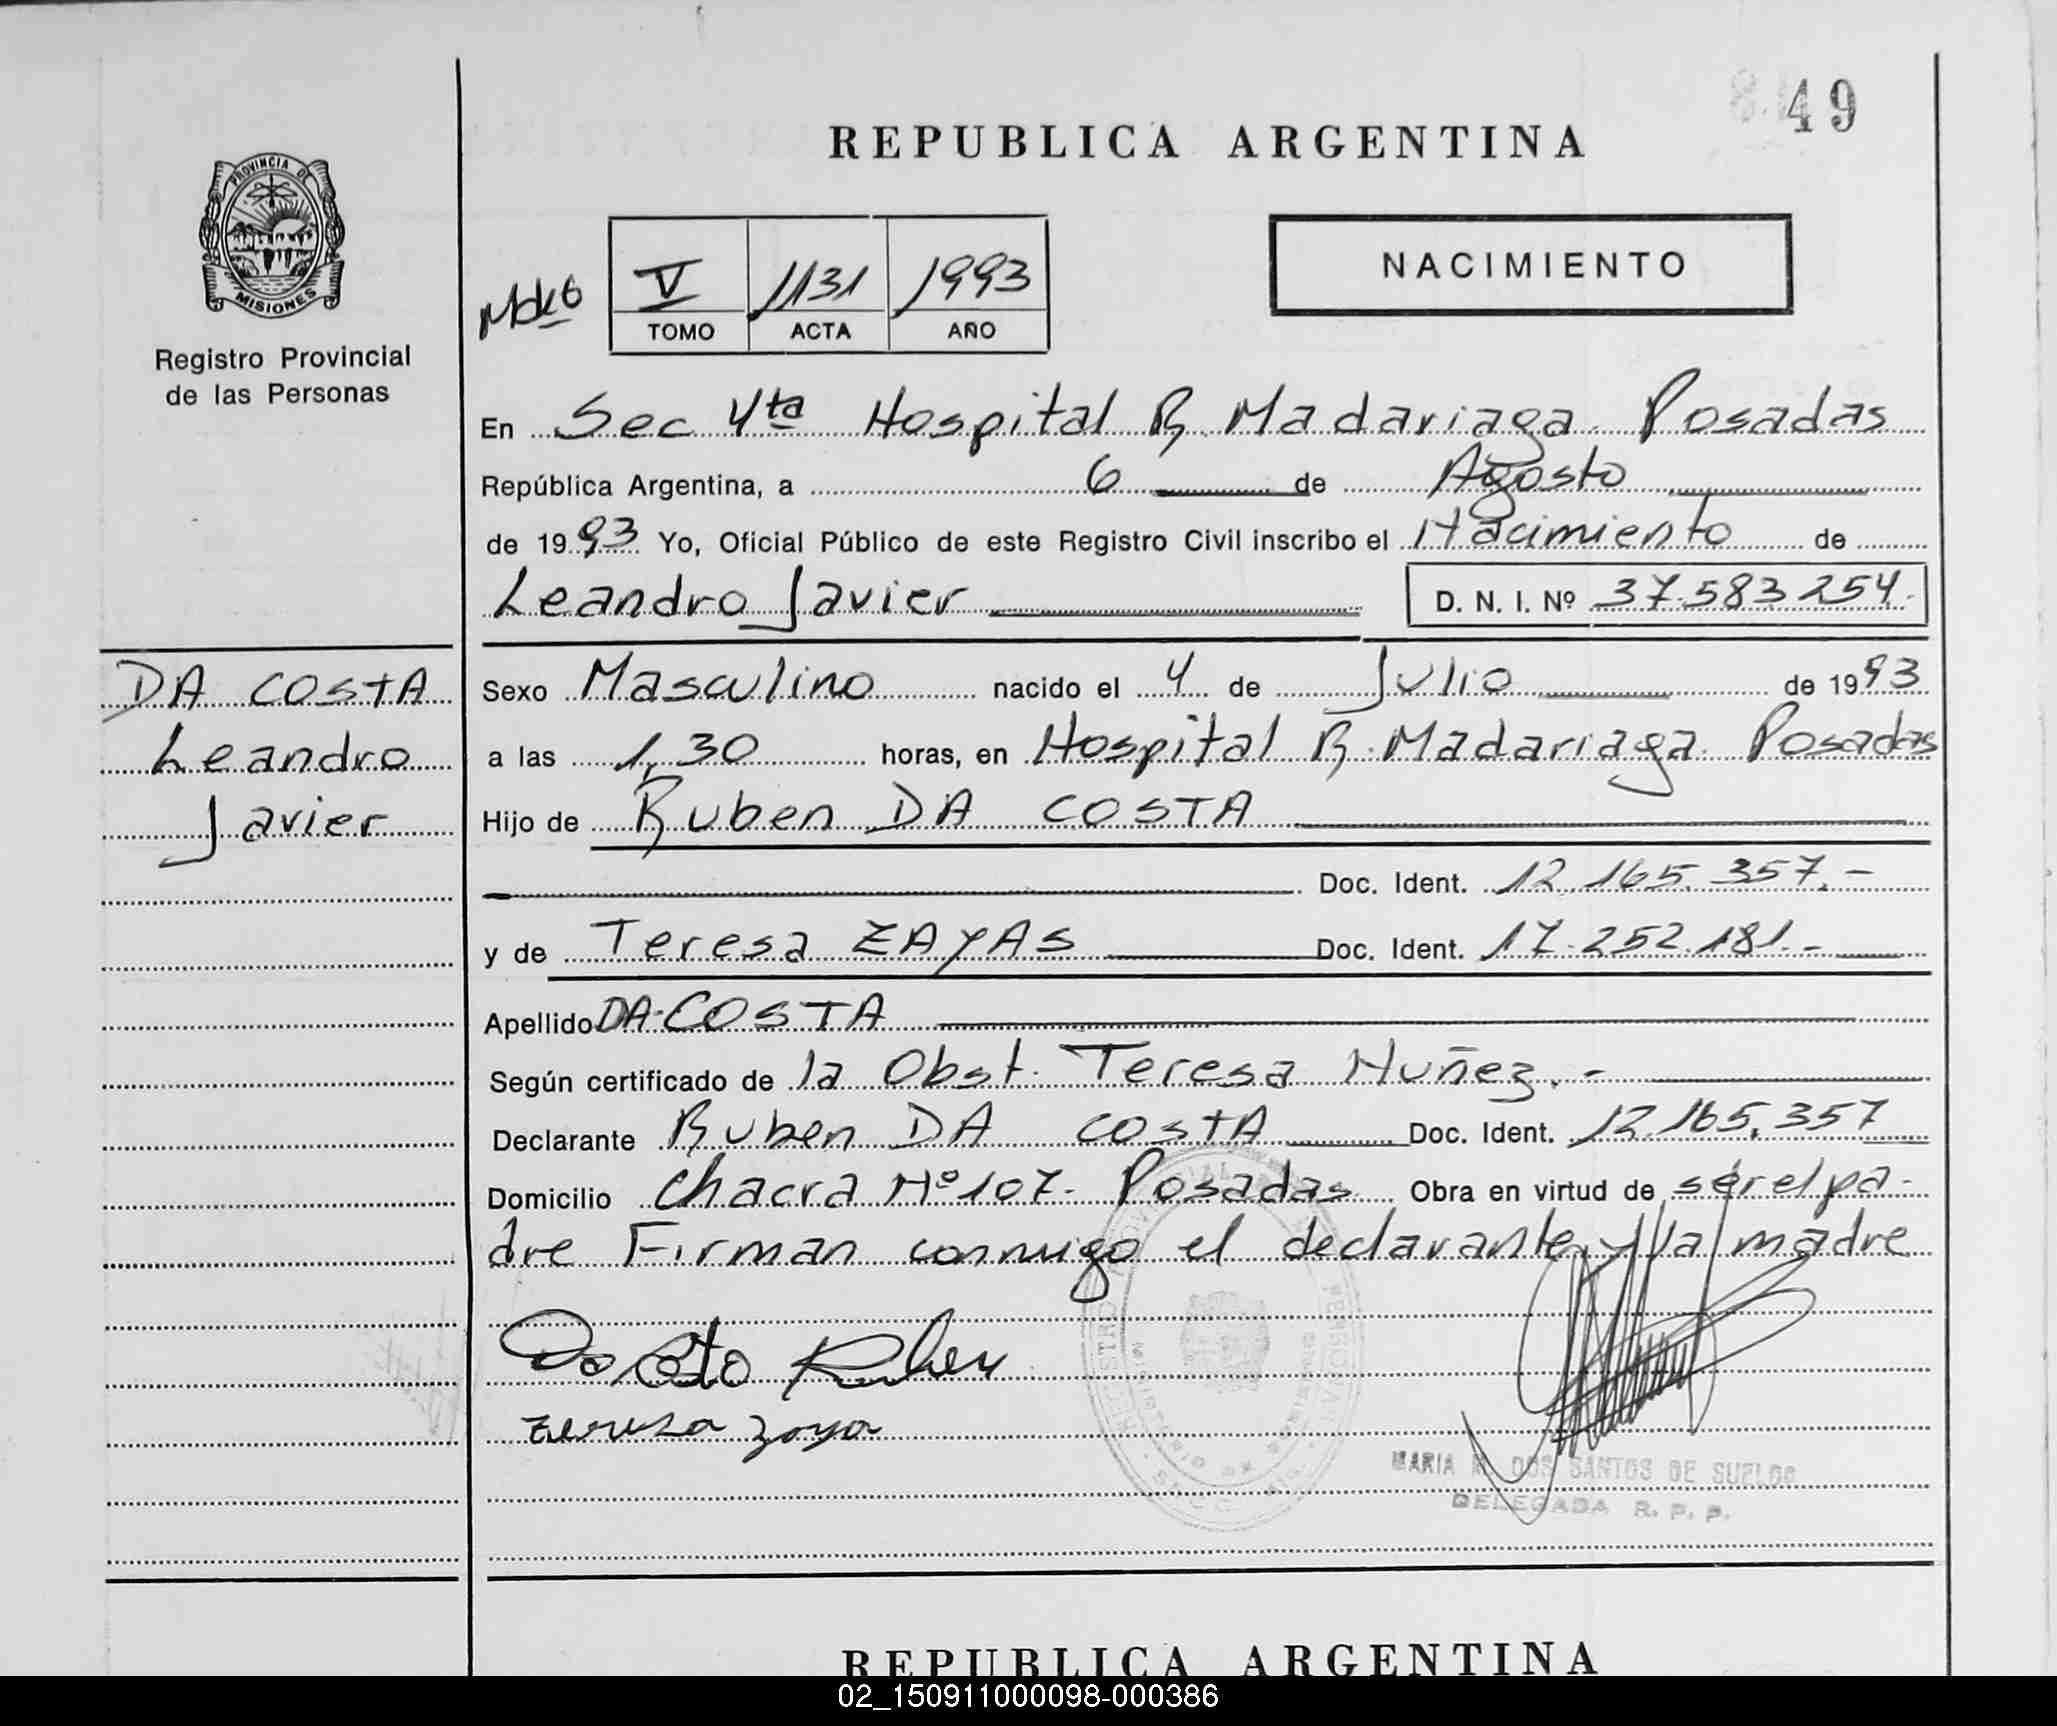 49
REPUBLICA ARGENTINA
PROVINCIA DE
MISIONES
NACIMIENTO
V 1131 1993
TOMO ACTA AÑO
Registro Provincial
de las Personas
En Sec 4ta Hospital R. Madariaga. Posadas
República Argentina, a 6 de Agosto
de 1993 Yo, Oficial Público de este Registro Civil inscribo el Nacimiento de
Leandro Javier D. N. I. Nº 37.583.254.
DA COSTA
Leandro
Javier
Sexo Masculino nacido el 4 de Julio de 1993
a las 1,30 horas, en Hospital R. Madariaga. Posadas
Hijo de Ruben DA COSTA
Doc. Ident. 12.165.357.-
y de Teresa ZAYAS Doc. Ident. 17.252.181.-
Apellido DA COSTA
Según certificado de la Obst. Teresa Nuñez.-
Declarante Ruben DA COSTA Doc. Ident. 12.165.357
Domicilio Chacra Nº 107. Posadas Obra en virtud de ser el pa-
dre Firman conmigo el declarante y la madre
Da Costa Ruben
MARIA M. DOS SANTOS DE SUELDO
DELEGADA R. P. P.
REPUBLICA ARGENTINA
02_150911000098-000386